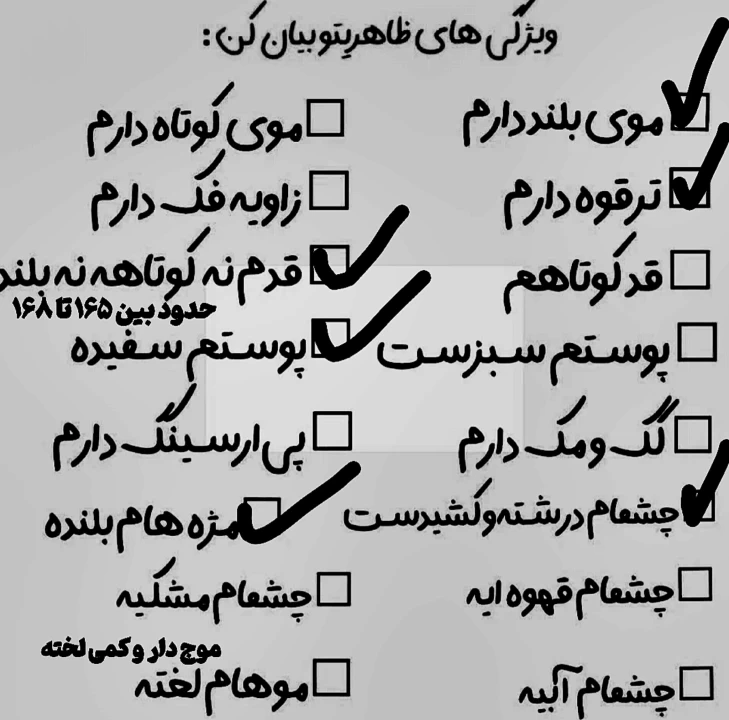 ویژگی های ظاهریتو بیان کن:
موی بلند دارم
موی کوتاه دارم
ترقوه دارم
زاویه فک دارم
قد کوتاهم
قدم نه کوتاهه نه بلند
حدود بین ۱۶۵ تا ۱۶۸
پوستم سبزست
پوستم سفیده
کک و مک دارم
پی ارسینگ دارم
چشمام درشته و کشیدست
مژه هام بلنده
چشمام قهوه ایه
چشمام مشکیه
موج دار و کمی لخته
چشمام آبیه
موهام لخته